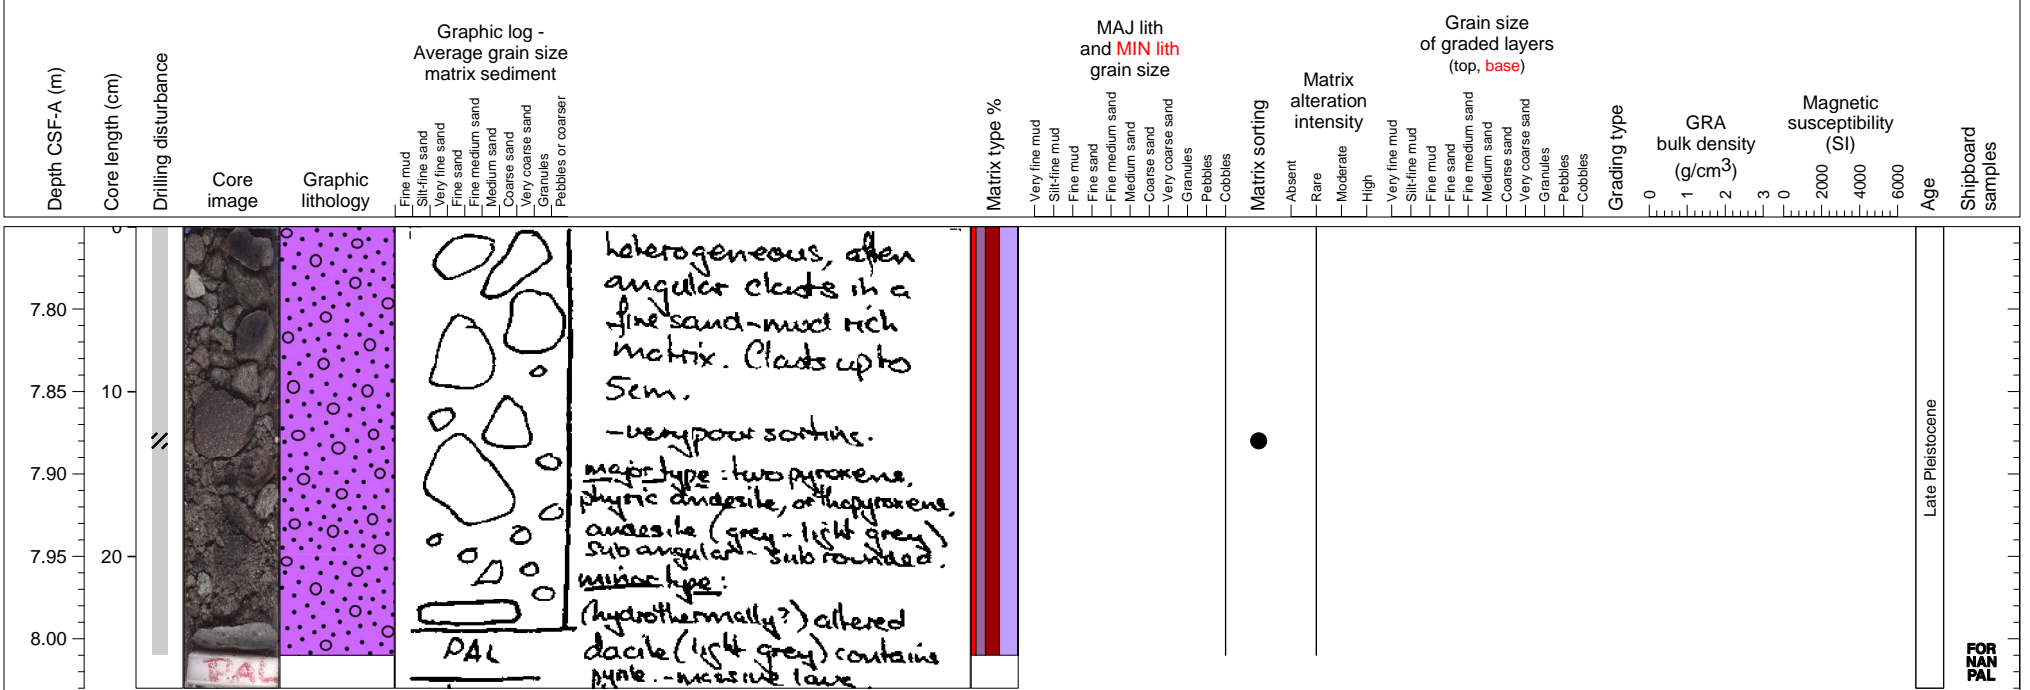 Depth CSF-A (m)
Core length (cm)
Drilling disturbance
Core
image
Graphic
lithology
Graphic log -
Average grain size
matrix sediment
Fine mud
Silt-fine sand
Very fine sand
Fine sand
Fine medium sand
Medium sand
Coarse sand
Very coarse sand
Granules
Pebbles or coarser
Matrix type %
MAJ lith
and MIN lith
grain size
Very fine mud
Silt-fine mud
Fine mud
Fine sand
Fine medium sand
Medium sand
Coarse sand
Very coarse sand
Granules
Pebbles
Cobbles
Matrix sorting
Matrix
alteration
intensity
Absent
Rare
Moderate
High
Grain size
of graded layers
(top, base)
Very fine mud
Silt-fine mud
Fine mud
Fine sand
Fine medium sand
Medium sand
Coarse sand
Very coarse sand
Granules
Pebbles
Cobbles
Grading type
GRA
bulk density
(g/cm3)
0 1 2 3
Magnetic
susceptibility
(SI)
0 2000 4000 6000
Age
Shipboard
samples
0
7.80
7.85
10
7.90
7.95
20
8.00
heterogeneous, often
angular clasts in a
fine sand-mud rich
matrix. Clasts up to
5cm.
-very poor sorting.
major type: two pyroxene,
phyric andesite, orthopyroxene,
andesite (grey - light grey)
subangular - subrounded.
minor type:
(hydrothermally?) altered
dacite (light grey) contains
pyrite. - massive lava
PAL
PAL
Late Pleistocene
FOR
NAN
PAL